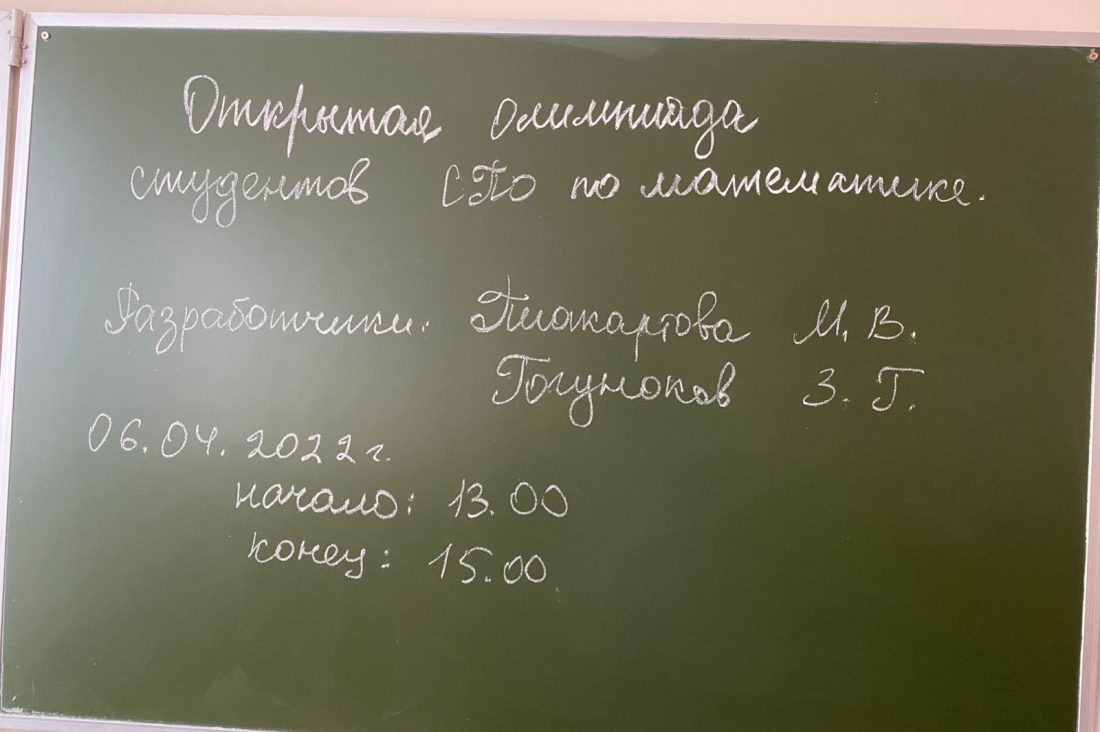 Открытая олимпиада
студентов СПО по математике.
Разработчики: М. В.
Гогуноков З. Г.
06.04.2022г.
начало: 13.00
конец: 15.00